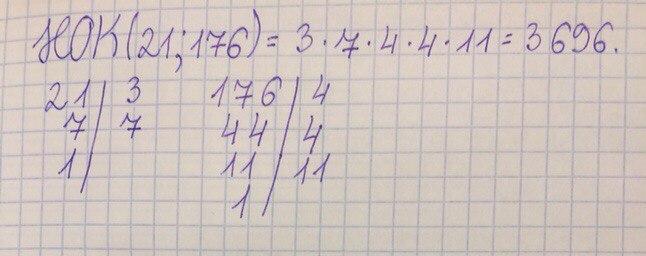 НОК(21;176) = 3·7·4·4·11 = 3696.
21 | 3 176 | 4
7 | 7 44 | 4
1 | 11 | 11
1 |